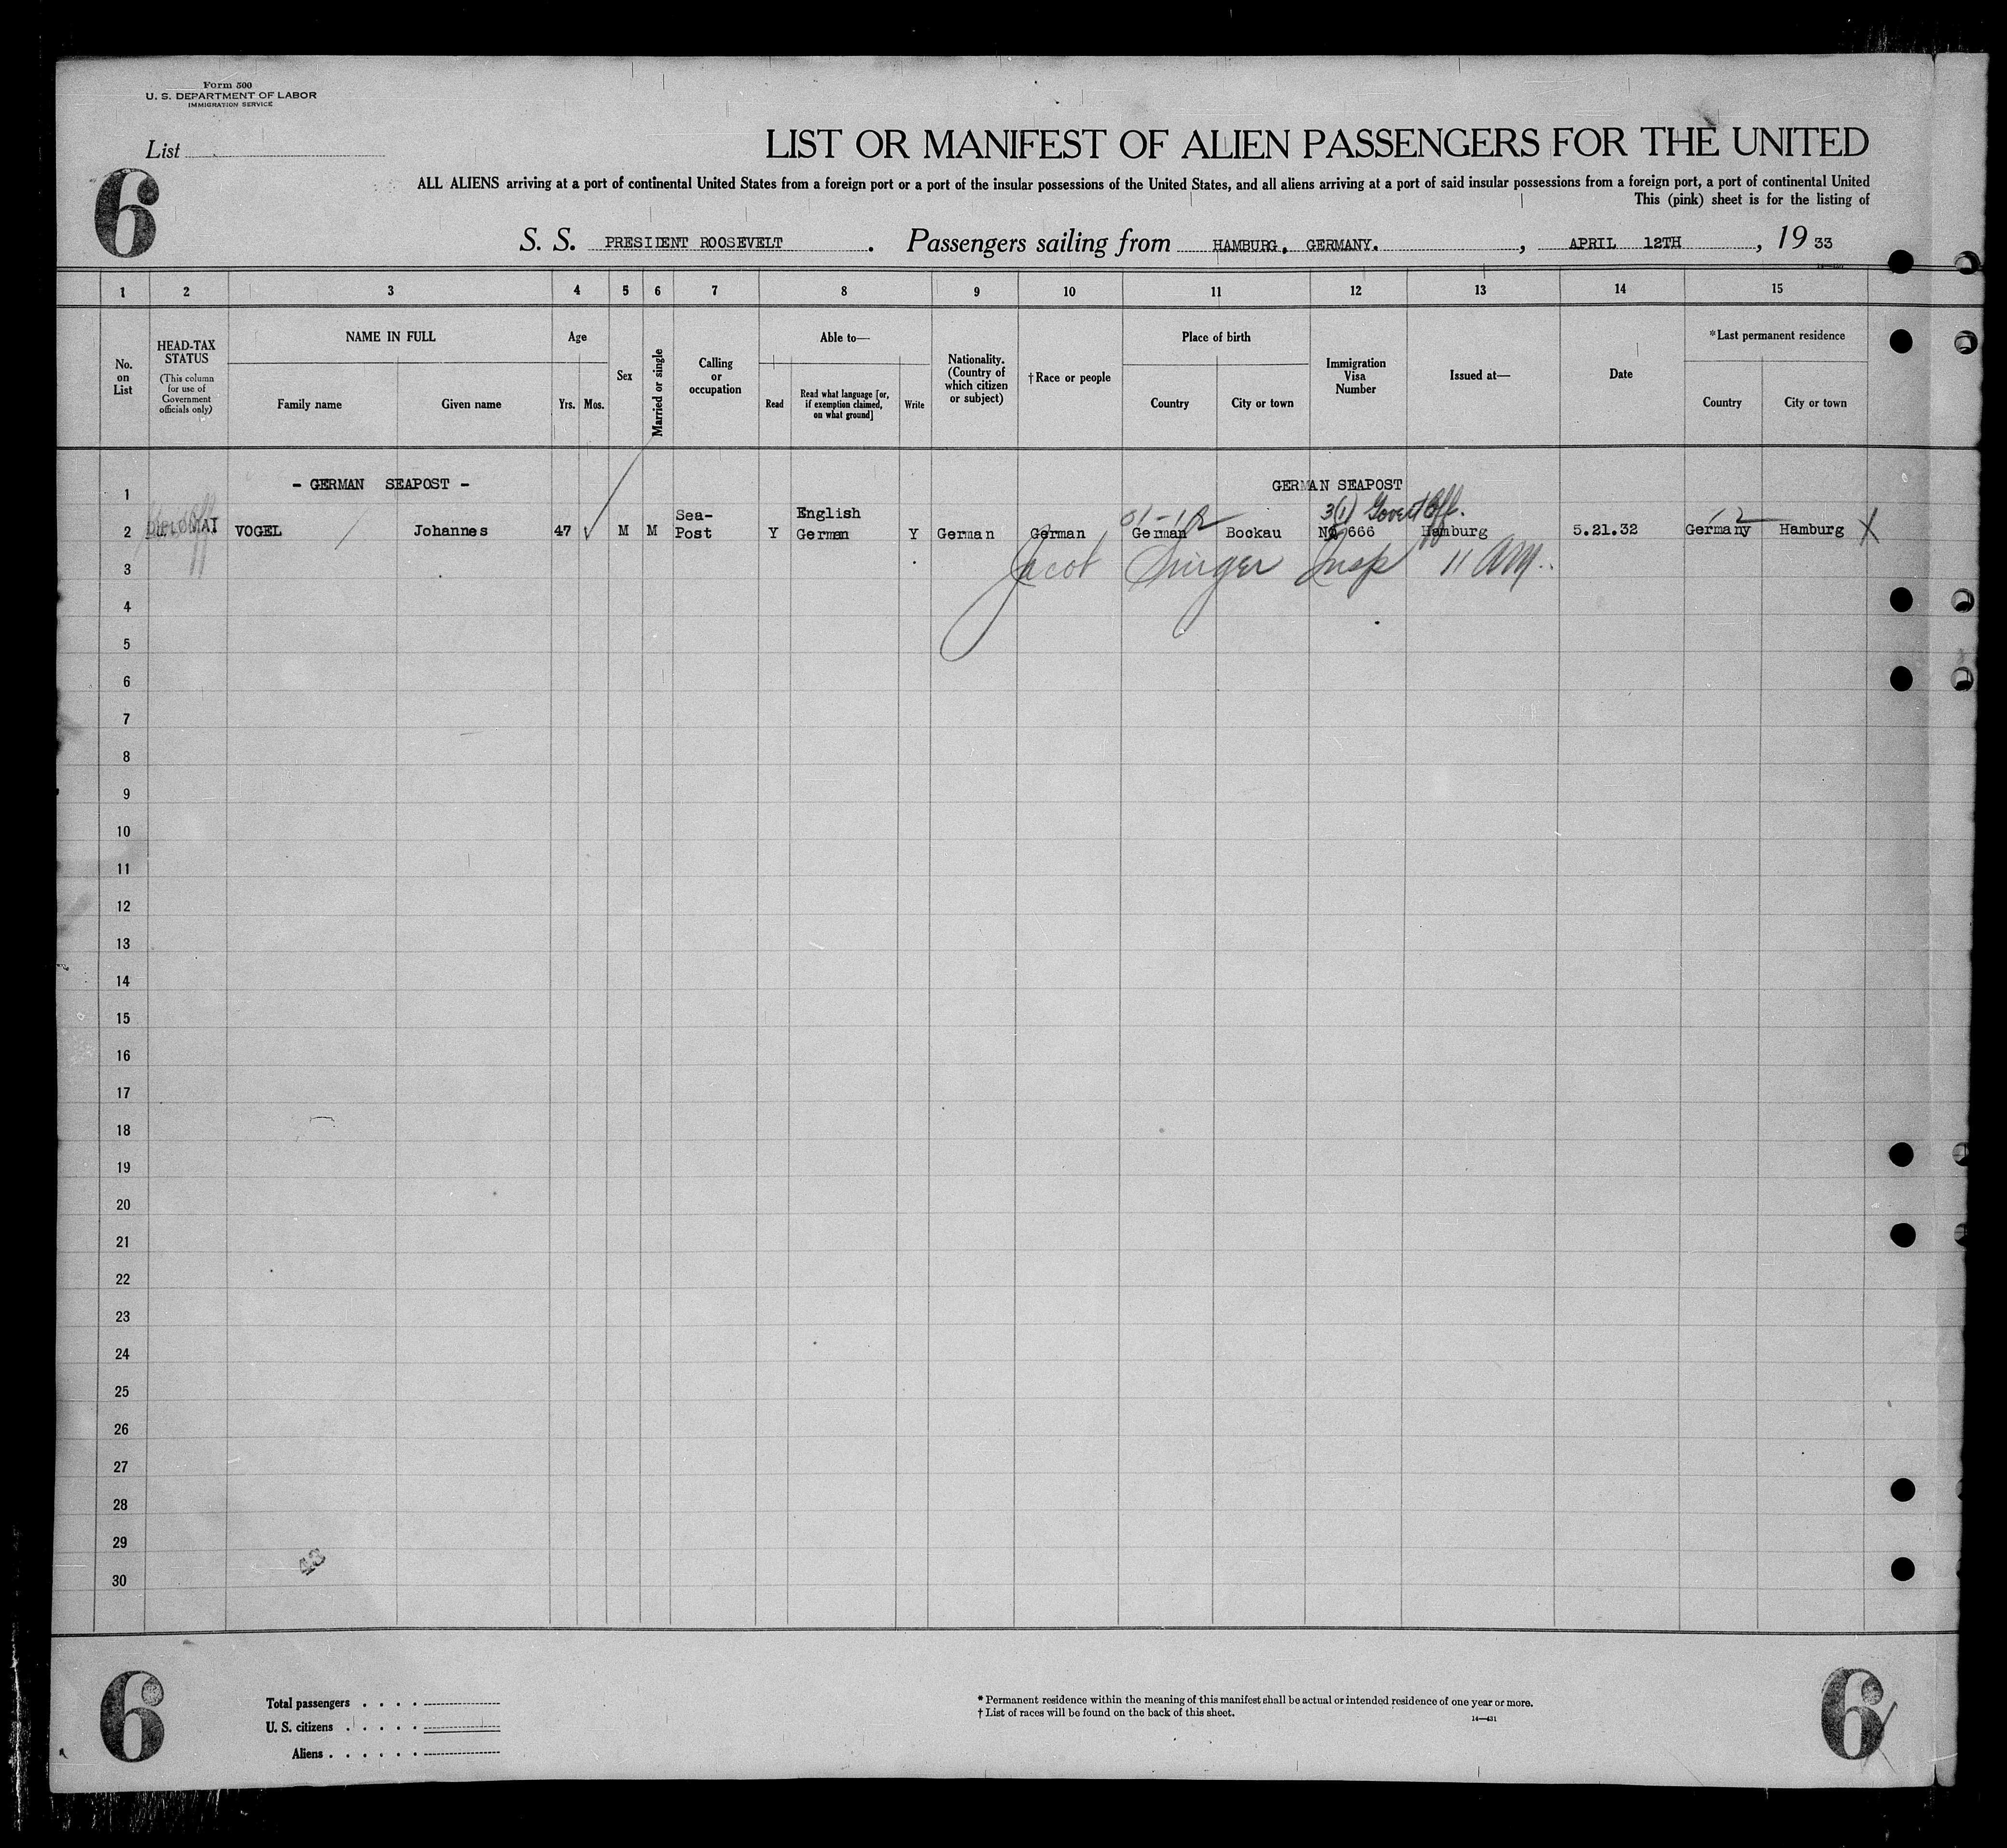 Form 500
U. S. DEPARTMENT OF LABOR
IMMIGRATION SERVICE
List
6
LIST OR MANIFEST OF ALIEN PASSENGERS FOR THE UNITED
ALL ALIENS arriving at a port of continental United States from a foreign port or a port of the insular possessions of the United States, and all aliens arriving at a port of said insular possessions from a foreign port, a port of continental United
This (pink) sheet is for the listing of
S. S. PRESIDENT ROOSEVELT . Passengers sailing from HAMBURG, GERMANY. , APRIL 12TH , 19 33
1 2 3 4 5 6 7 8 9 10 11 12 13 14 15
No. on List
HEAD-TAX STATUS
(This column for use of Government officials only)
NAME IN FULL
Family name Given name
Age
Yrs. Mos.
Sex
Married or single
Calling or occupation
Able to—
Read
Read what language [or, if exemption claimed, on what ground]
Write
Nationality. (Country of which citizen or subject)
†Race or people
Place of birth
Country City or town
Immigration Visa Number
Issued at—
Date
*Last permanent residence
Country City or town
1 - GERMAN SEAPOST - GERMAN SEAPOST
3(1) Govert Off.
2 VOGEL Johannes 47 M M Sea-Post Y English German Y German German German Bockau No 666 Hamburg 5.21.32 Germany Hamburg X
3 Jacob Singer Insp 11 AM.
4
5
6
7
8
9
10
11
12
13
14
15
16
17
18
19
20
21
22
23
24
25
26
27
28
29
43
30
6
Total passengers . . . .
U. S. citizens . . . . .
Aliens . . . . . .
* Permanent residence within the meaning of this manifest shall be actual or intended residence of one year or more.
† List of races will be found on the back of this sheet.
14—431
6